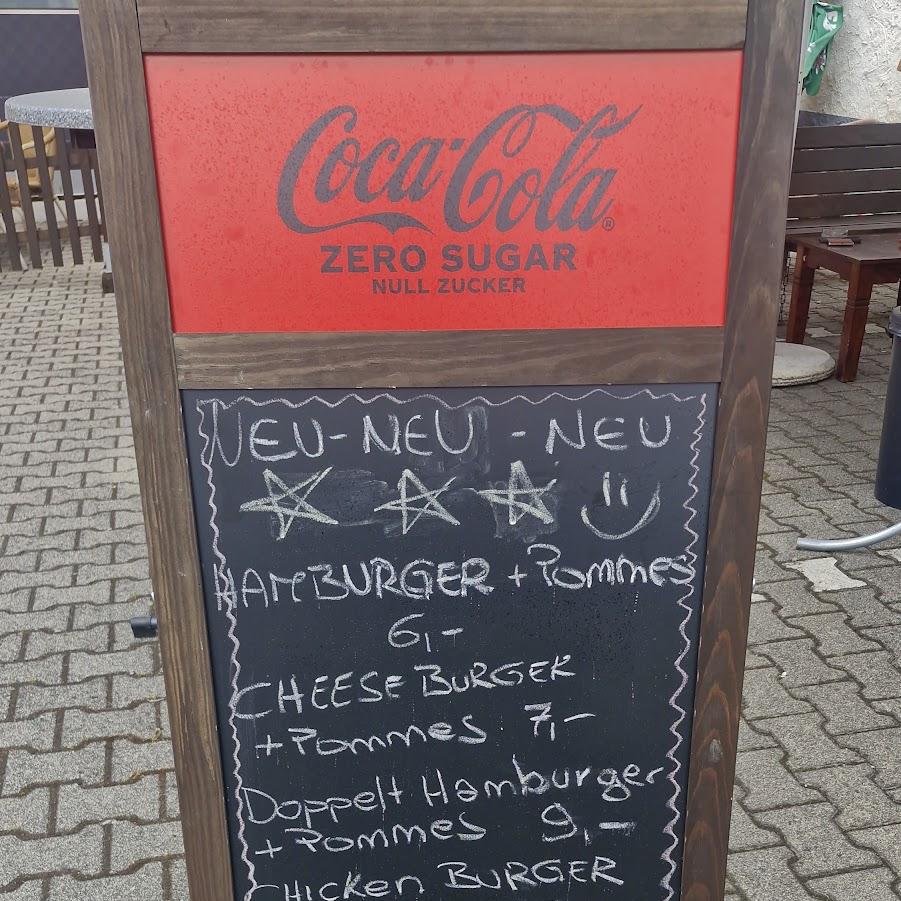 Coca-Cola®
ZERO SUGAR
NULL ZUCKER
NEU-NEU-NEU
HAMBURGER + Pommes
6,-
CHEESE BURGER
+ Pommes 7,-
Doppelt Hamburger
+ Pommes 9,-
CHICKEN BURGER